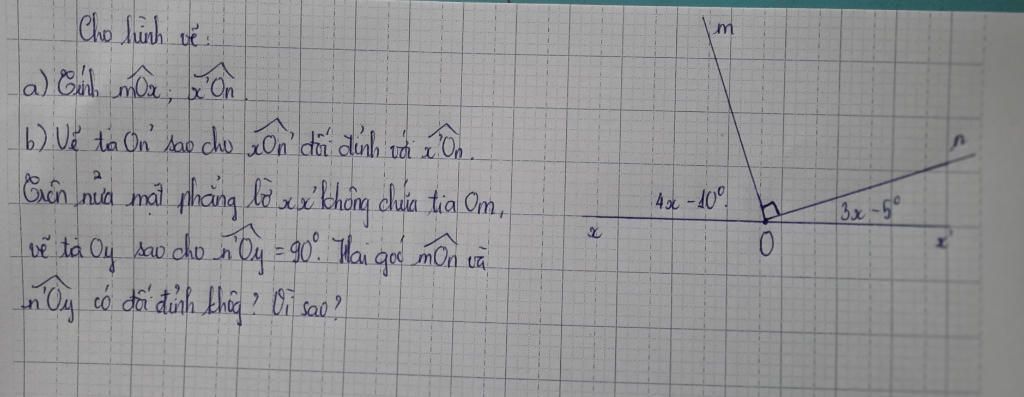 Cho hình vẽ:
a) Tính mÔx; x'Ôn.
b) Vẽ tia On' sao cho xÔn' đối đỉnh với x'Ôn.
Trên nửa mặt phẳng bờ xx' không chứa tia Om,
vẽ tia Oy sao cho n'Ôy = 90°. Hai góc mÔn và
n'Ôy có đối đỉnh không? Vì sao?
m
n
4x - 10°
3x - 5°
x
O
x'